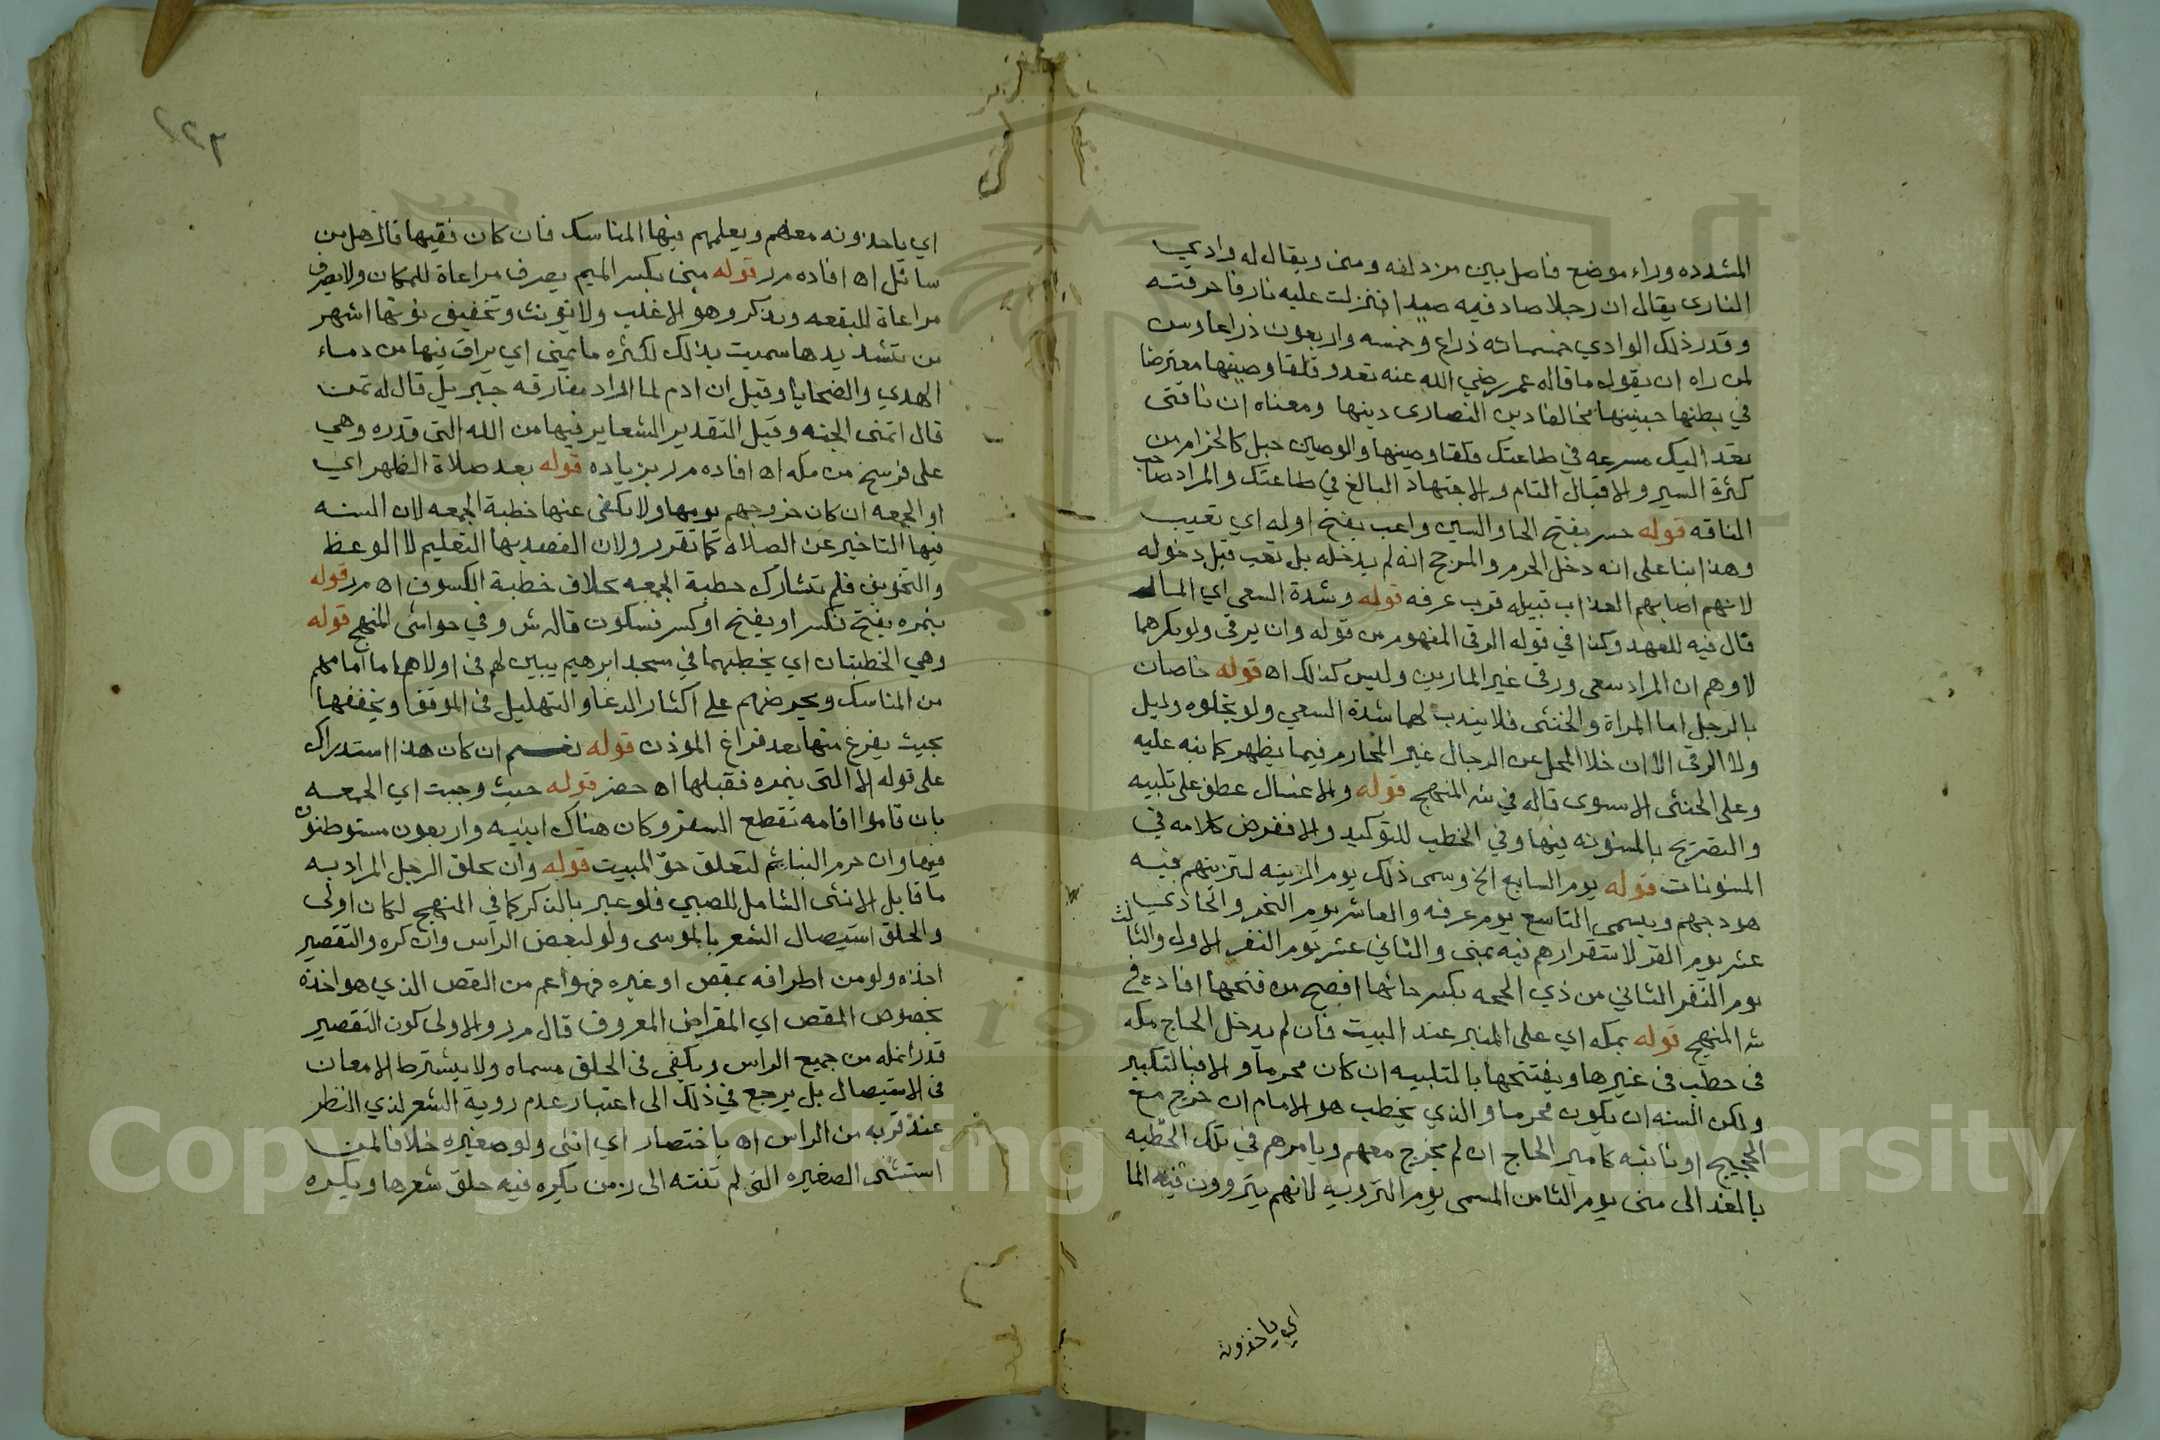 المشدده وراء موضع فاصل بين مزدلفه ومنى ويقال له وادي
النارى يقال ان رجلا صاد فيه صيدا فنزلت عليه نار فاحرقته
وقدر ذلك الوادي خمسمائه ذراع وخمسه واربعون ذراعا وسن
لمن راه ان يقول ما قاله عمر رضي الله عنه تعدو قلقا وضينها معترضا
في بطنها جنينها مخالفا دين النصارى دينها ومعناه ان ناقتى
تعد اليك مسرعه في طاعتك قلقا وضينها والوضين حبل كالحزام من
كثرة السير والاقبال التام والاجتهاد البالغ في طاعتك والمراد صاحب
الناقه قوله حسر بفتح الحا والسين واعب بفتح اوله اي تعيب
وهذا بنا على انه دخل الحرم والمرجح انه لم يدخله بل تعب قبل دخوله
لانهم اصابهم العذاب قبيله قرب عرفه قوله وشدة السعي اي المال
قال فيه للعهد وكذا في قوله الرقي المفهوم من قوله وان يرقى ولو نكرهما
لاوهم ان المراد سعى ورقى غير المارين وليس كذلك اه قوله خاصان
بالرجل اما المراة والخنثى فلا يندب لهما شدة السعي ولو بخلوه وليل
ولا الرقى الا ان خلا المحل عن الرجال غير المحارم فيما يظهر كما نبه عليه
وعلى الخنثى الاسنوى قاله في شـ المنهج قوله والاغتسال عطف على تلبيه
والتصريح بالمسنونه فيها وفي الخطب للتوكيد والا ففرض كلامه في
المسنونات قوله يوم السابع الخ وسمى ذلك يوم الزينه لتزيينهم فيه
هودجهم ويسمى التاسع يوم عرفه والعاشر يوم النحر والحادي
عشر يوم القر لاستقرارهم فيه بمنى والثاني عشر يوم النفر الاول والثالث
يوم النفر الثاني من ذي الحجه بكسر حائها افصح من فتحها افاده في
شـ المنهج قوله بمكه اي على المنبر عند البيت فان لم يدخل الحاج مكه
فى خطب فى غيرها ويفتتحها بالتلبيه ان كان محرما والا فبالتكبير
ولكن السنه ان يكون محرما والذي يخطب هو الامام ان خرج مع
الحجيج او نائبه كامير الحاج ان لم يخرج معهم ويامرهم في تلك الخطبه
بالغد الى منى يوم الثامن المسمى يوم الترويه لانهم يتروون فيه الما
اي ياخذونه
٢٢٢
اي ياخذونه معهم ويعلمهم فيها المناسك فان كان فقيها قال هل من
سائل اه افاده مر قوله منى بكسر الميم يصرف مراعاة للمكان ولا يصرف
مراعاة للبقعه وتذكر وهو الاغلب ولا تونث وتخفيف نونها اشهر
من تشديدها سميت بذلك لكثره ما يمنى اي يراق فيها من دماء
الهدي والضحايا وقيل ان ادم لما اراد مفارقه جبريل قال له تمن
قال اتمنى الجنه وقيل التقدير الشعاير فيها من الله التي قدره وهي
على فرسخ من مكه اه افاده مر بزياده قوله بعد صلاة الظهر اي
او الجمعه ان كان خروجهم يومها ولا يكفى عنها خطبة الجمعه لان السنه
فيها التاخير عن الصلاة كما تقرر ولان القصد بها التعليم لا الوعظ
والتخويف فلم تشارك خطبة الجمعه بخلاف خطبة الكسوف اه مر قوله
بنمره بفتح فكسر او بفتح او كسر فسكون قاله شر وفي حواشى المنهج قوله
وهي الخطبتان اي يخطبهما في مسجد ابرهيم يبين لهم فى اولاهما ما امامهم
من المناسك ويحرضهم على اكثار الدعا والتهليل فى الموقف ويخففها
بحيث يفرغ منها بعد فراغ الموذن قوله نعم ان كان هذا استدراك
على قوله الا التى بنمره فقبلها اه حضر قوله حيث وجبت اي الجمعه
بان قاموا اقامه تقطع السفر وكان هناك ابنيه واربعون مستوطنون
فيها وان حرم البنا ثم لتعلق حق المبيت قوله وان يحلق الرجل المراد به
ما قابل الانثى الشامل للصبي فلو عبر بالذكر كما في المنهج لكان اولى
والحلق استيصال الشعر بالموسى ولو لبعض الراس وان كره والتقصير
اخذه ولو من اطرافه بمقص او غيره فهو اعم من القص الذي هو اخذه
بخصوص المقص اي المقراض المعروف قال مر والاولى كون التقصير
قدر انمله من جميع الراس ويكفي فى الحلق مسماه ولا يشترط الامعان
فى الاستيصال بل يرجع في ذلك الى اعتبار عدم روية الشعر لذي النظر
عند قربه من الراس اه باختصار اي انثى ولو صغيره خلافا لمن
استثنى الصغيره التى لم تنته الى زمن يكره فيه حلق شعرها ويكره